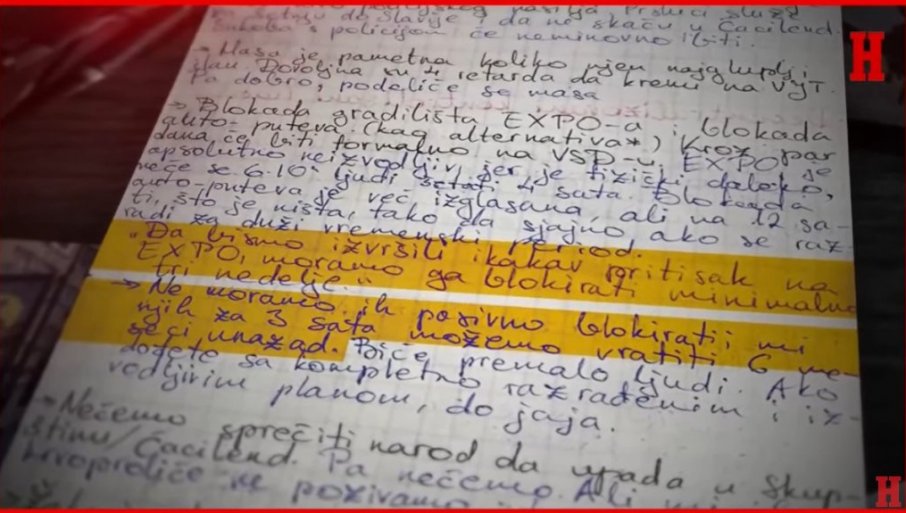 policijskog nasilja
do Slavije i da ne skaču u Ćacilend.
s policijom će neminovno biti.
→ Masa je pametna koliko njen najgluplji
član. Dovoljna su 4 retarda da krene na VJT.
Pa dobro, podeliće se masa
→ Blokada gradilišta EXPO-a i blokada
auto-puteva (kao alternativa*) Kroz par
dana će biti formalno na VSD-u. EXPO je
apsolutno neizvodljiv, jer je fizički daleko,
neće se 6-10k ljudi šetati 4 sata. Blokada
auto-puteva je već izglasana, ali na 12 sa-
ti, što je ništa, tako da sjajno ako se raz-
radi za duži vremenski period.
"Da bismo izvršili ikakav pritisak na
EXPO, moramo ga blokirati minimalno
tri nedelje."
→ Ne moramo ih pasivno blokirati; mi
njih za 3 sata možemo vratiti 6 me-
seci unazad. Biće premalo ljudi. Ako
dođete sa kompletno razrađenim i iz-
vodljivim planom, do jaja.
→ Nećemo sprečiti narod da upada u Skup-
štinu/Ćacilend. Pa nećemo. Ali mi
krvoproliće ne pozivamo
H
H